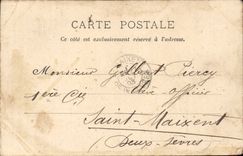 CARTE POSTALE
Ce côté est exclusivement réservé à l'adresse.
Monsieur Gilbert Piercy
1ère Cie Élève Officier
Saint-Maixent
Deux-Sèvres